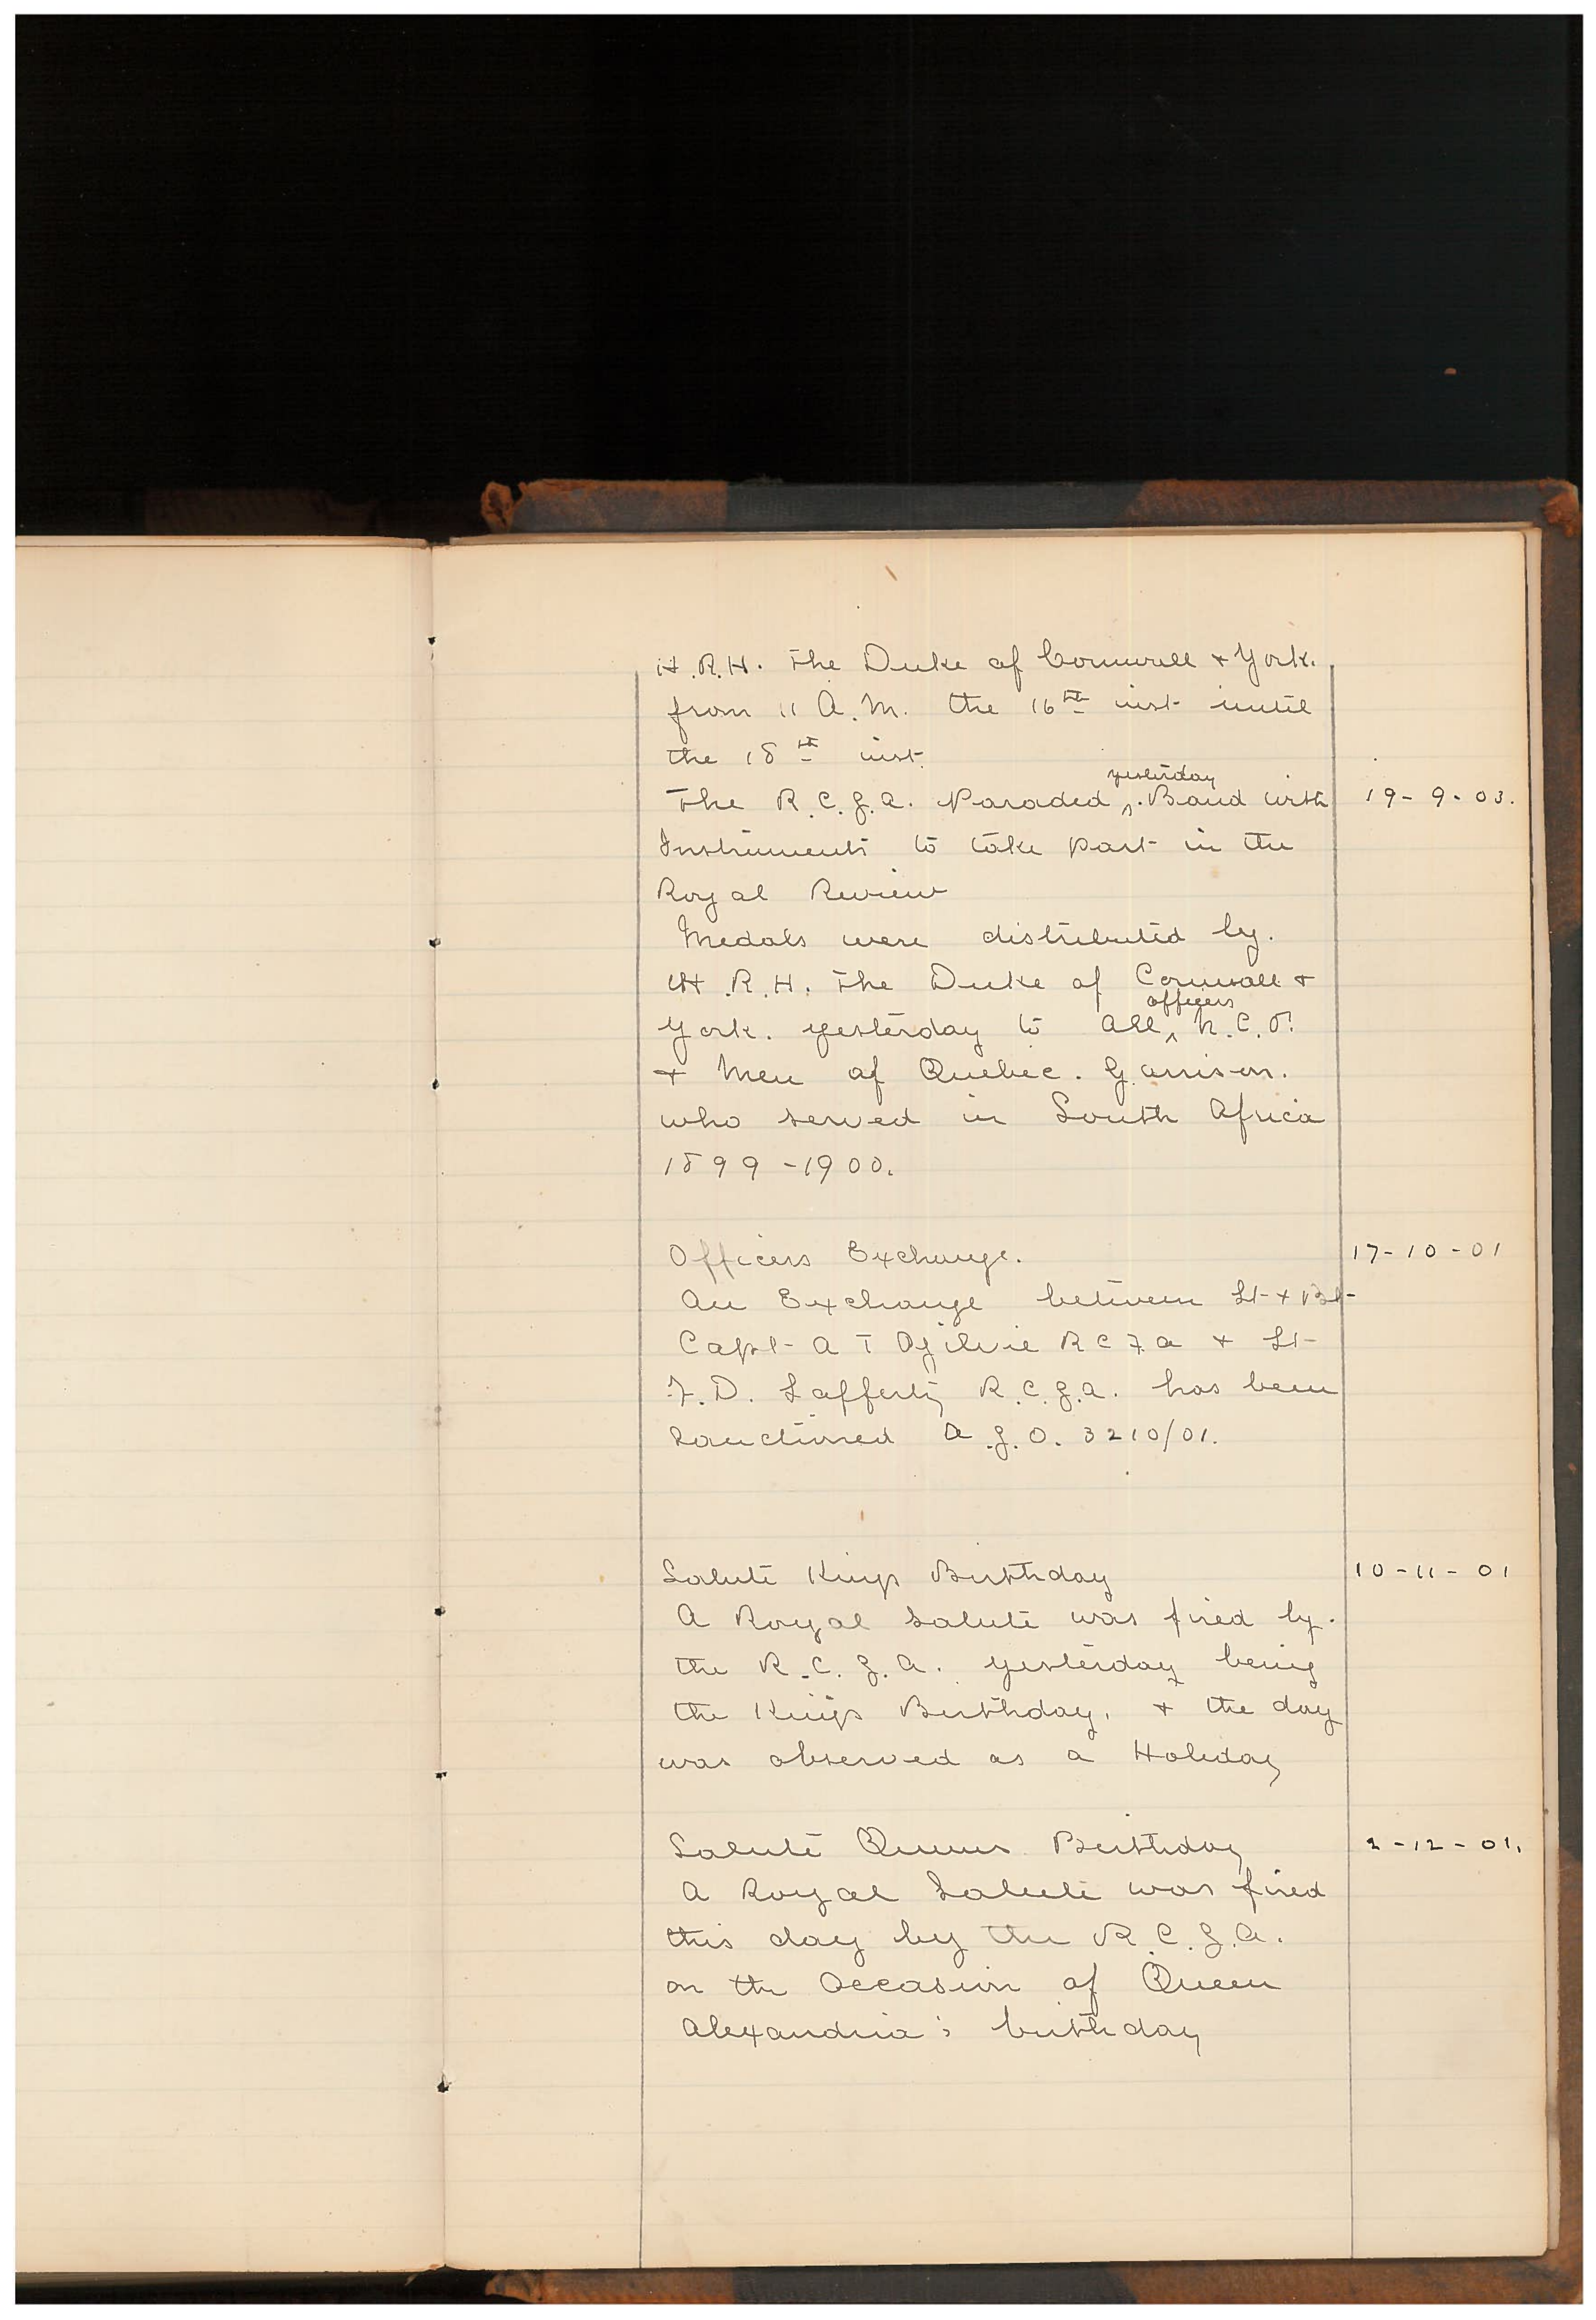 H.R.H. The Duke of Cornwall & York.
from 11 A.M. the 16th inst until
the 18th inst.
The R.C.G.A. Paraded yesterday. Band with 19-9-03.
Instruments to take part in the
Royal Review
Medals were distributed by.
H.R.H. The Duke of Cornwall &
York. yesterday to all officers N.C.O.
& Men of Quebec. Garrison.
who served in South Africa
1899-1900.
Officers Exchange. 17-10-01
An Exchange between Lt & Bt
Capt A T Ogilvie R C F A & Lt
F.D. Lafferty R.C.G.A. has been
Sanctioned A.G.O. 3210/01.
Salute Kings Birthday 10-11-01
A Royal Salute was fired by.
the R.C.G.A. yesterday being
the Kings Birthday, & the day
was observed as a Holiday
Salute Queens Birthday 2-12-01.
A Royal Salute was fired
this day by the R.C.G.A.
on the Occasion of Queen
Alexandria's birthday